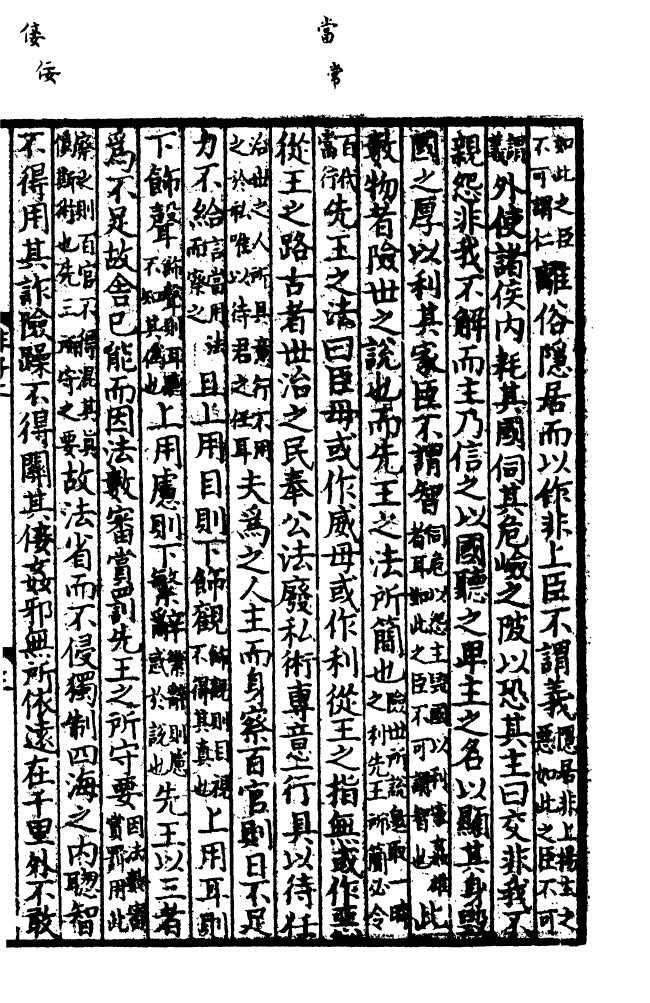 當
常
倿
佞
如此之臣不可謂仁離俗隱居而以作非上臣不謂義隱居非上揚主之惡如此之臣不可
謂義外使諸侯內耗其國伺其危嶮之陂以恐其主曰交非我不
親怨非我不解而主乃信之以國聽之卑主之名以顯其身毀
國之厚以利其家臣不謂智伺危以怨主毀國以利家姦雄者耳如此之臣不可謂智也此
數物者險世之說也而先王之法所簡也險世所說急取一時之利先王所簡必令
百代當行先王之法曰臣毋或作威毋或作利從王之指無或作惡
從王之路古者世治之民奉公法廢私術專意一行具以待任
治世之人所具意行不用之於私唯以待君之任耳夫爲之人主而身察百官則日不足
力不給言當用法而察之且上用目則下飾觀飾觀則目視不得其真也上用耳則
下飾聲飾聲則耳聽不知其僞也上用慮則下繁辭繁辭則慮惑於說也先王以三者
爲不足故舍已能而因法數審賞罰先王之所守要因法數審賞罪用此
則百官不得混其真斯術也先三所守之要故法省而不侵獨制四海之內聰智
不得用其詐險躁不得關其倿姦邪無所依遠在千里外不敢